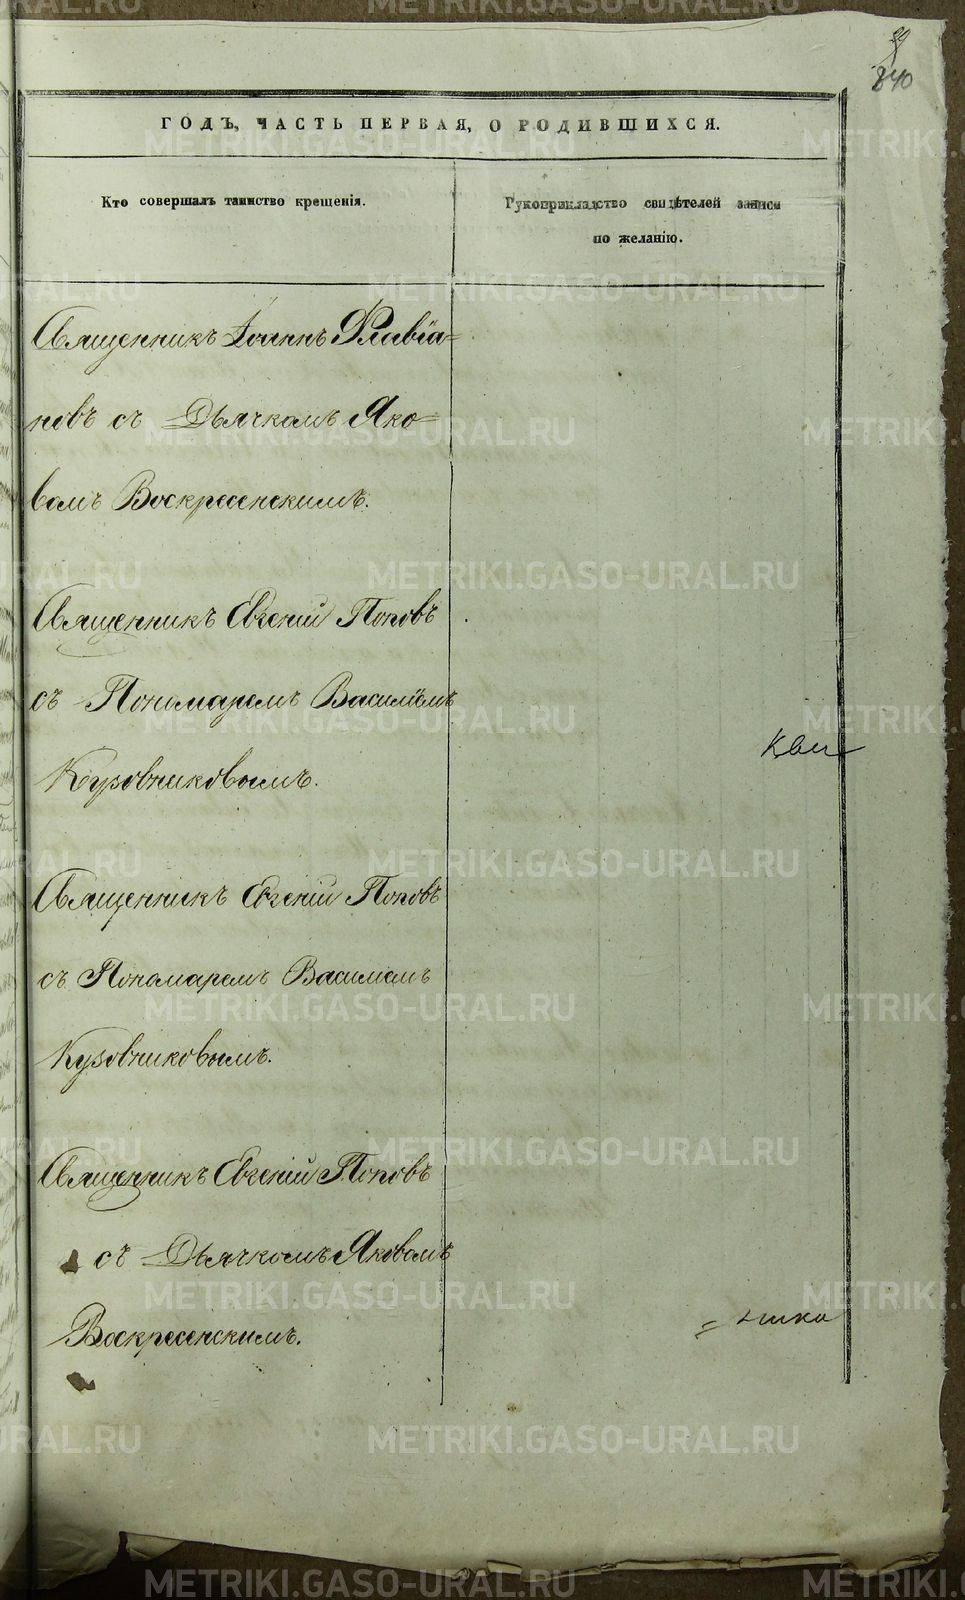 840
ГОДЪ, ЧАСТЬ ПЕРВАЯ, О РОДИВШИХСЯ.
Кто совершалъ таинство крещенія.
Рукоприкладство свидѣтелей записи
по желанію.
Священникъ Іоаннъ Флавіа=
новъ съ Дьячкомъ Яко=
вомъ Воскресенскимъ.
Священникъ Евгеній Поповъ
съ Пономаремъ Василіемъ
Кузовниковымъ.
Священникъ Евгеній Поповъ
съ Пономаремъ Василіемъ
Кузовниковымъ.
Священникъ Евгеній Поповъ
съ Дьячкомъ Яковомъ
Воскресенскимъ.
METRIKI.GASO-URAL.RU